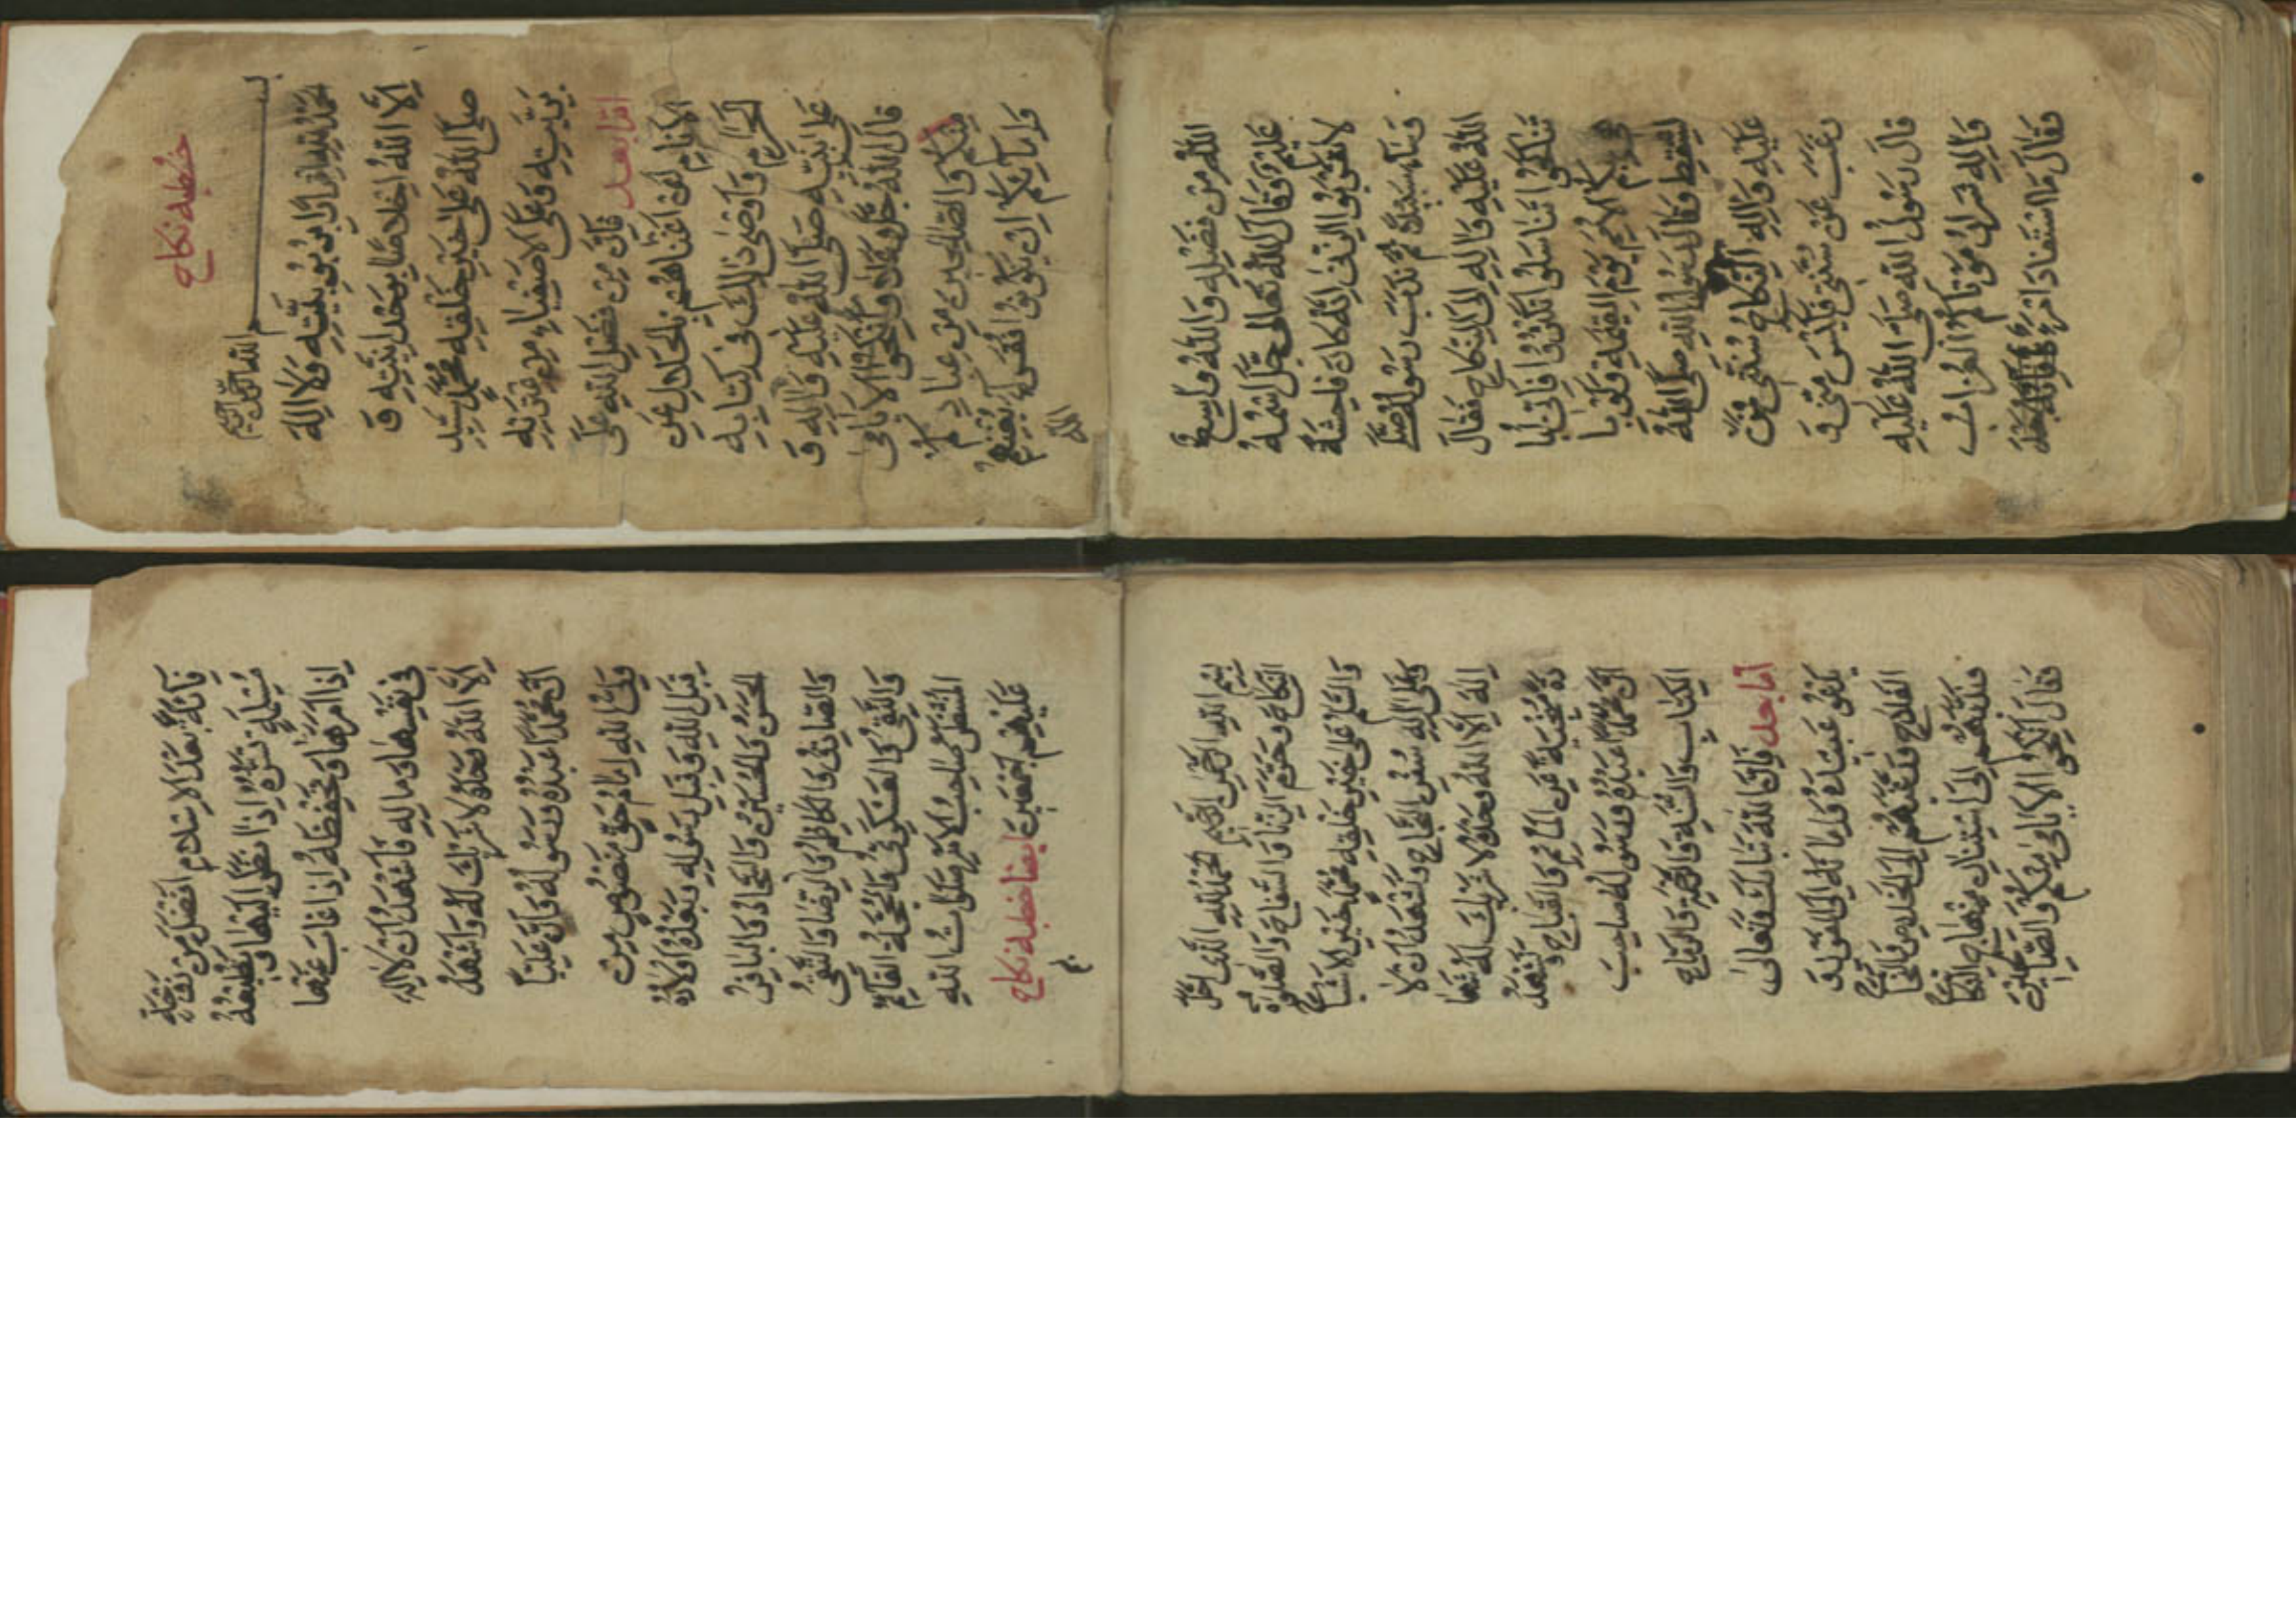 خطبه نکاح
بسم الله الرحمن الرحیم
اَلْحَمْدُ لِلّٰهِ اِقْرَارًا بِرُبُوبِيَّتِهِ وَلَا اِلٰهَ
اِلَّا اللّٰهُ اِخْلَاصًا بِوَحْدَانِيَّتِهِ وَ
صَلَّى اللّٰهُ عَلٰى خَيْرِ خَلْقِهِ مُحَمَّدٍ سَيِّدِ
بَرِيَّتِهِ وَعَلَى الْاَصْفِيَاءِ مِنْ عِتْرَتِهِ
اما بعد فَاِنَّ مِنْ فَضْلِ اللّٰهِ عَلَى
الْاَنَامِ اَنْ اَغْنَاهُمْ بِالْحَلَالِ عَنِ
الْحَرَامِ وَاَوْضَحَ ذٰلِكَ فِى كِتَابِهِ
عَلَى نَبِيِّهِ صَلَّى اللّٰهُ عَلَيْهِ وَاٰلِهِ وَ
قَالَ اللّٰهُ جَلَّ وَعَلَا وَاَنْكِحُوا الْاَيَامٰى
مِنْكُمْ وَالصَّالِحِينَ مِنْ عِبَادِكُمْ
وَاِمَائِكُمْ اِنْ يَكُونُوا فُقَرَاءَ يُغْنِهِمُ
اللّٰهُ
اللّٰهُ مِنْ فَضْلِهِ وَاللّٰهُ وَاسِعٌ
عَلِيمٌ وَقَالَ اللّٰهُ تَعَالٰى جَلَّ اسْمُهُ
لَا تَقْرَبُوا الزِّنٰى اِنَّهُ كَانَ فَاحِشَةً
وَسَاءَ سَبِيلًا ثُمَّ نَدَبَ رَسُولُ اللّٰهِ صَلَّى
اللّٰهُ عَلَيْهِ وَاٰلِهِ اِلَى النِّكَاحِ فَقَالَ
تَنَاكَحُوا تَنَاسَلُوا تَكْثُرُوا فَاِنِّى اُبَا
هِى بِكُمُ الْاُمَمَ يَوْمَ الْقِيٰمَةِ وَلَوْ بِا
لسِّقْطِ وَقَالَ رَسُولُ اللّٰهِ صَلَّى اللّٰهُ
عَلَيْهِ وَاٰلِهِ اَلنِّكَاحُ سُنَّتِى فَمَنْ
رَغِبَ عَنْ سُنَّتِى فَلَيْسَ مِنِّى وَ
قَالَ رَسُولُ اللّٰهِ صَلَّى اللّٰهُ عَلَيْهِ
وَاٰلِهِ شِرَارُ مَوْتَاكُمُ الْعُزَّابُ
وَقَالَ مَا اسْتَفَادَ امْرُؤٌ فَائِدَةً بَعْدَ
فَائِدَةٍ بَعْدَ الْاِسْلَامِ اَفْضَلَ مِنْ زَوْجَةٍ
مُسْلِمَةٍ تَسُرُّهُ اِذَا نَظَرَ اِلَيْهَا وَتُطِيعُهُ
اِذَا اَمَرَهَا وَتَحْفَظُهُ اِذَا غَابَ عَنْهَا
فِى نَفْسِهَا وَمَالِهِ فَاَشْهَدُ اَنْ لَا اِلٰهَ
اِلَّا اللّٰهُ وَحْدَهُ لَا شَرِيكَ لَهُ وَاَشْهَدُ
اَنَّ مُحَمَّدًا عَبْدُهُ وَرَسُولُهُ وَاَنَّ عَلِيًّا
وَلِىُّ اللّٰهِ اِمَامُ حَقٍّ مَنْصُوصٍ مِنْ
قِبَلِ اللّٰهِ وَقِبَلِ رَسُولِهِ وَبَعْدَهُ اَوْلَادُهُ
الْحَسَنُ وَالْحُسَيْنُ وَالسَّجَّادُ وَالْبَاقِرُ
وَالصَّادِقُ وَالْكَاظِمُ وَالرِّضَا وَالتَّقِىُّ
وَالنَّقِىُّ وَالْعَسْكَرِىُّ وَالْحُجَّةُ الْقَائِمُ
الْمُنْتَظَرُ صَاحِبُ الْاَمْرِ صَلَوَاتُ اللّٰهِ
عَلَيْهِمْ اَجْمَعِينَ ایضا خطبه نکاح
بِسْمِ اللّٰهِ الرَّحْمٰنِ الرَّحِيمِ نَحْمَدُ لِلّٰهِ الَّذِى اَحَلَّ
النِّكَاحَ وَحَرَّمَ الزِّنَا وَالسِّفَاحَ وَالصَّلٰوةُ
وَالسَّلَامُ عَلٰى خَيْرِ خَلْقِهِ مُحَمَّدٍ خَيْرِ الْاَشْبَاحِ
وَعَلٰى اٰلِهِ سُفُنِ النَّجَاحِ وَنَشْهَدُ اَنْ لَا
اِلٰهَ اِلَّا اللّٰهُ وَحْدَهُ لَا شَرِيكَ لَهُ شَهَا
دَةً مُنْجِيَةً عَنِ الْمَاٰثِمِ وَالْقِبَاحِ وَنَشْهَدُ
اَنَّ مُحَمَّدًا عَبْدُهُ وَرَسُولُهُ صَاحِبُ
الْكِتَابِ وَالرِّمَاحِ
اما بعد فَاِنَّ اللّٰهَ تَبَارَكَ وَتَعَالٰى
يَدْعُو عِبَادَهُ وَاِمَائَهُ اِلَى الْفَوْزِ وَ
الْفَلَاحِ
فَقَالَ اَنْكِحُوا الْاَيَامٰى مِنْكُمْ وَالصَّالِحِينَ